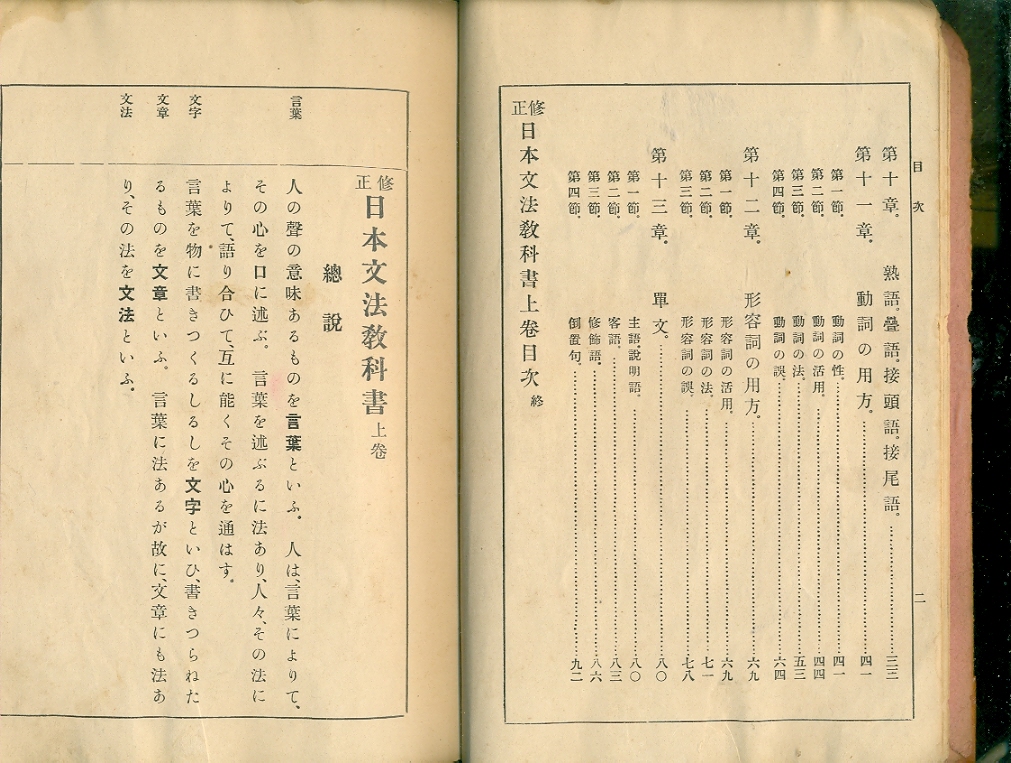 目次
二
第十章。 熟語。疊語。接頭語。接尾語。……三三
第十一章。 動詞の用方。……四一
第一節。 動詞の性。……四一
第二節。 動詞の活用。……四四
第三節。 動詞の法。……五三
第四節。 動詞の誤。……六四
第十二章。 形容詞の用方。……六九
第一節。 形容詞の活用。……六九
第二節。 形容詞の法。……七一
第三節。 形容詞の誤。……七八
第十三章。 單文。……八〇
第一節。 主語。說明語。……八〇
第二節。 客語。……八三
第三節。 修飾語。……八六
第四節。 倒置句。……九二
修正日本文法敎科書上卷目次終
修正日本文法敎科書上卷
總說
言葉
人の聲の意味あるものを言葉といふ。人は、言葉によりて、
その心を口に述ぶ。言葉を述ぶるに法あり、人々、その法に
よりて、語り合ひて、互に能くその心を通はす。
文字
言葉を物に書きつくるしるしを文字といひ、書きつらねた
文章
るものを文章といふ。言葉に法あるが故に、文章にも法あ
文法
り、その法を文法といふ。